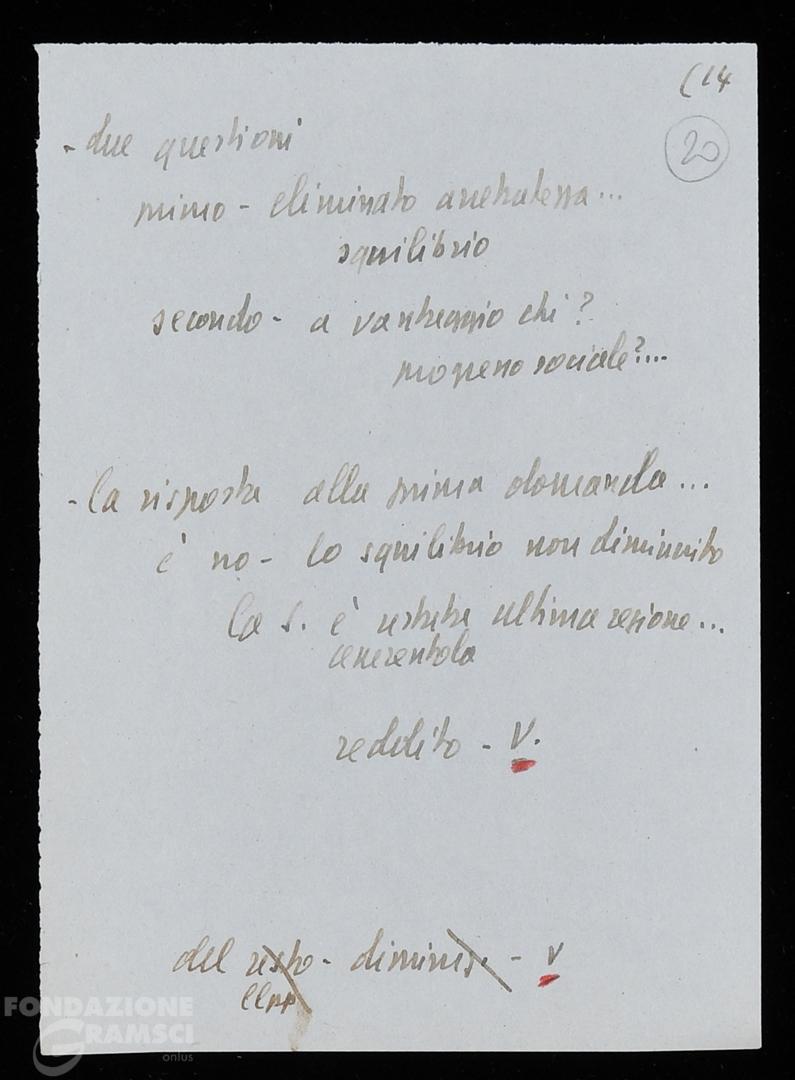 (14
20
- due questioni
primo - eliminato arretratezza...
squilibrio
secondo - a vantaggio chi?
progresso sociale?...
- la risposta alla prima domanda...
è no - lo squilibrio non diminuito
la S. è restata ultima regione...
cenerentola
reddito - V.
del resto - diminuz. - V
llpp
FONDAZIONE
GRAMSCI
onlus